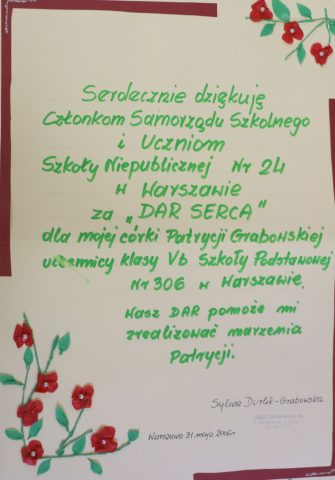 Serdecznie dziękuję
Członkom Samorządu Szkolnego
i Uczniom
Szkoły Niepublicznej Nr 24
w Warszawie
za „DAR SERCA"
dla mojej córki Patrycji Grabowskiej
uczennicy klasy Vb Szkoły Podstawowej
Nr 306 w Warszawie.
Wasz DAR pomoże mi
zrealizować marzenia
Patrycji.
Sylwia Durlik-Grabowska
Warszawa 31 maja 2006r.